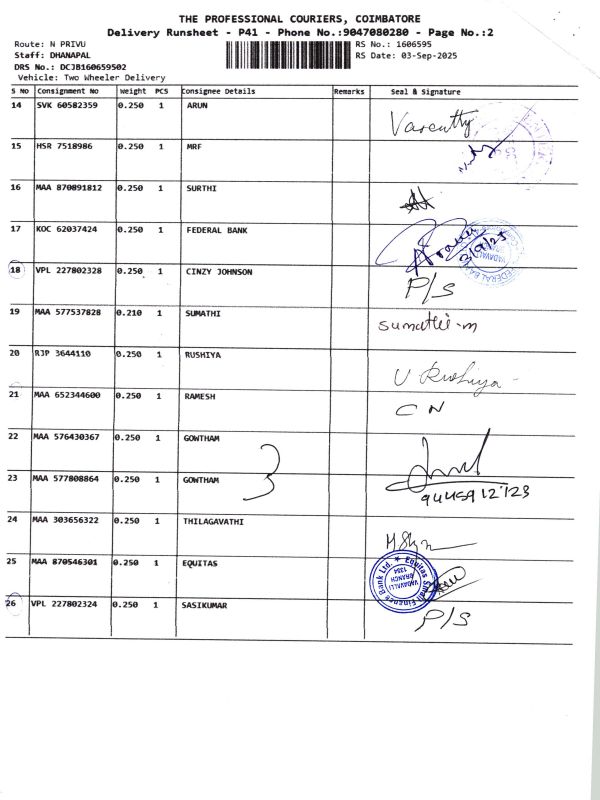 THE PROFESSIONAL COURIERS, COIMBATORE
Delivery Runsheet - P41 - Phone No.:9047080280 - Page No.:2
Route: N PRIVU RS No.: 1606595
Staff: DHANAPAL RS Date: 03-Sep-2025
DRS No.: DCJB160659502
Vehicle: Two Wheeler Delivery
S No Consignment No Weight PCS Consignee Details Remarks Seal & Signature
14 SVK 60582359 0.250 1 ARUN
15 HSR 7518986 0.250 1 MRF
16 MAA 870891812 0.250 1 SURTHI
17 KOC 62037424 0.250 1 FEDERAL BANK 3/9/25
18 VPL 227802328 0.250 1 CINZY JOHNSON P/S
19 MAA 577537828 0.210 1 SUMATHI Sumathi-m
20 RJP 3644110 0.250 1 RUSHIYA U Rushiya
21 MAA 652344600 0.250 1 RAMESH C N
22 MAA 576430367 0.250 1 GOWTHAM
23 MAA 577808864 0.250 1 GOWTHAM 3
24 MAA 303656322 0.250 1 THILAGAVATHI
25 MAA 870546301 0.250 1 EQUITAS Equitas Small Finance Bank Ltd. VADAVALLI BRANCH 1384
26 VPL 227802324 0.250 1 SASIKUMAR P/S